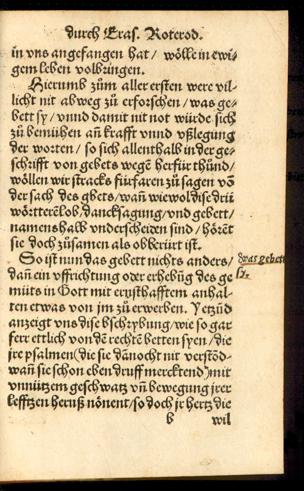 durch Eras. Roterod.
in vns angefangen hat / wölle in ewi-
gem leben volbringen.
Hierumb zům aller ersten were vil-
licht nit abweg zů erforschen / was ge-
bett sy / vnnd damit nit not würde sich
zů bemühen añ krafft vnnd vßlegung
der worten / so sich allenthalb in der ge-
schrifft von gebets wegē herfür thünd /
wöllen wir stracks fürfaren zů sagen võ
der sach des gbets / wañ wiewol dise drü
wörtter ē lob / dancksagung / vnd gebett /
namenshalb vnderscheiden sind / hörēt
sie doch zůsamen als obberürt ist.
So ist nun das gebett nichts anders /
dañ ein vffrichtung oder erhebūg des ge
müts in Gott mit ernsthafftem anhal-
ten etwas von jm zů erwerben. Yetzūd
anzeigt vns dise bschrybung / wie so gar
ferr ettlich von dē rechtē betten syen / die
jre psalmen (die sie dānocht nit verstōd-
wañ sie schon eben druff merckrend) mit
vnnützem geschwatz vñ bewegung jrer
lefftzen heruß nönent / so doch jr hertz die
b wil
Was gebett
sy.